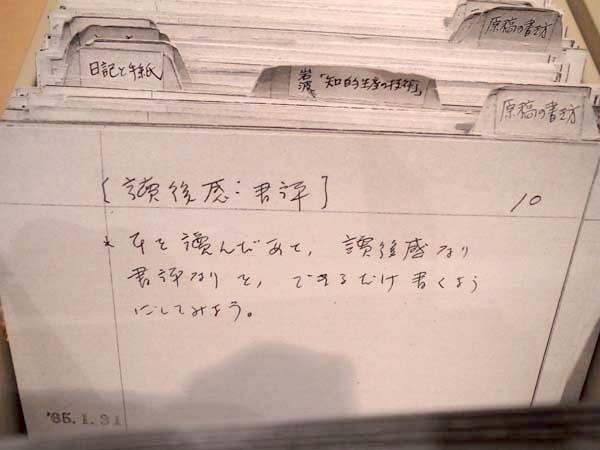 原稿の書き方
日記と手紙
岩波「知的生産の技術」
原稿の書き方
[讀後感:書評]
10
* 本を讀んだあと、讀後感なり
書評なりを、できるだけ書くよう
にしてみよう。
'65.1.31